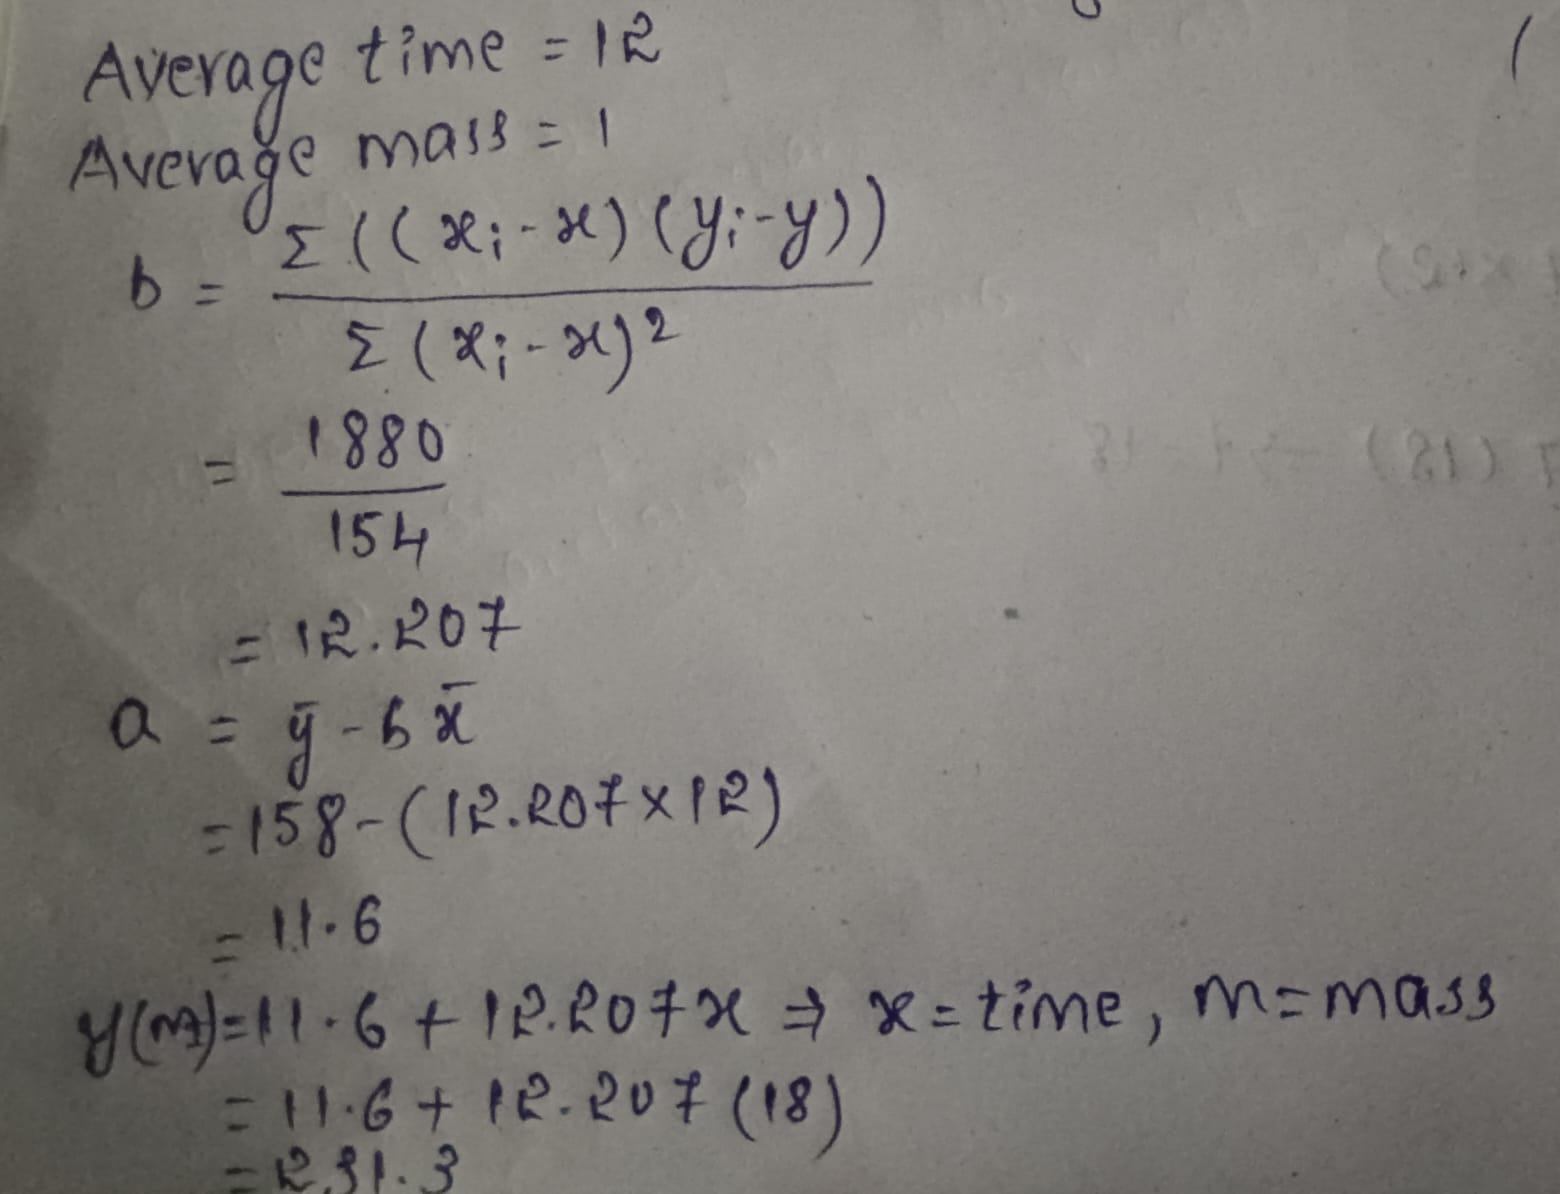 Average time = 12
Average mass = 1
b = Σ((xᵢ-x)(yᵢ-y))
Σ(xᵢ-x)²
= 1880
154
= 12.207
a = ȳ - b x̄
= 158 - (12.207 × 12)
= 11.6
y(m) = 11.6 + 12.207x ⇒ x = time, m = mass
= 11.6 + 12.207 (18)
= 231.3